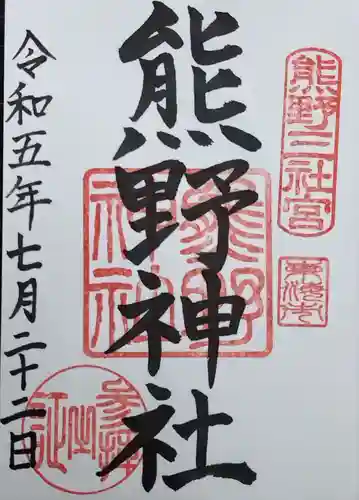 熊野三社宮
東海市
熊野神社
熊野
神社
令和五年七月二十二日